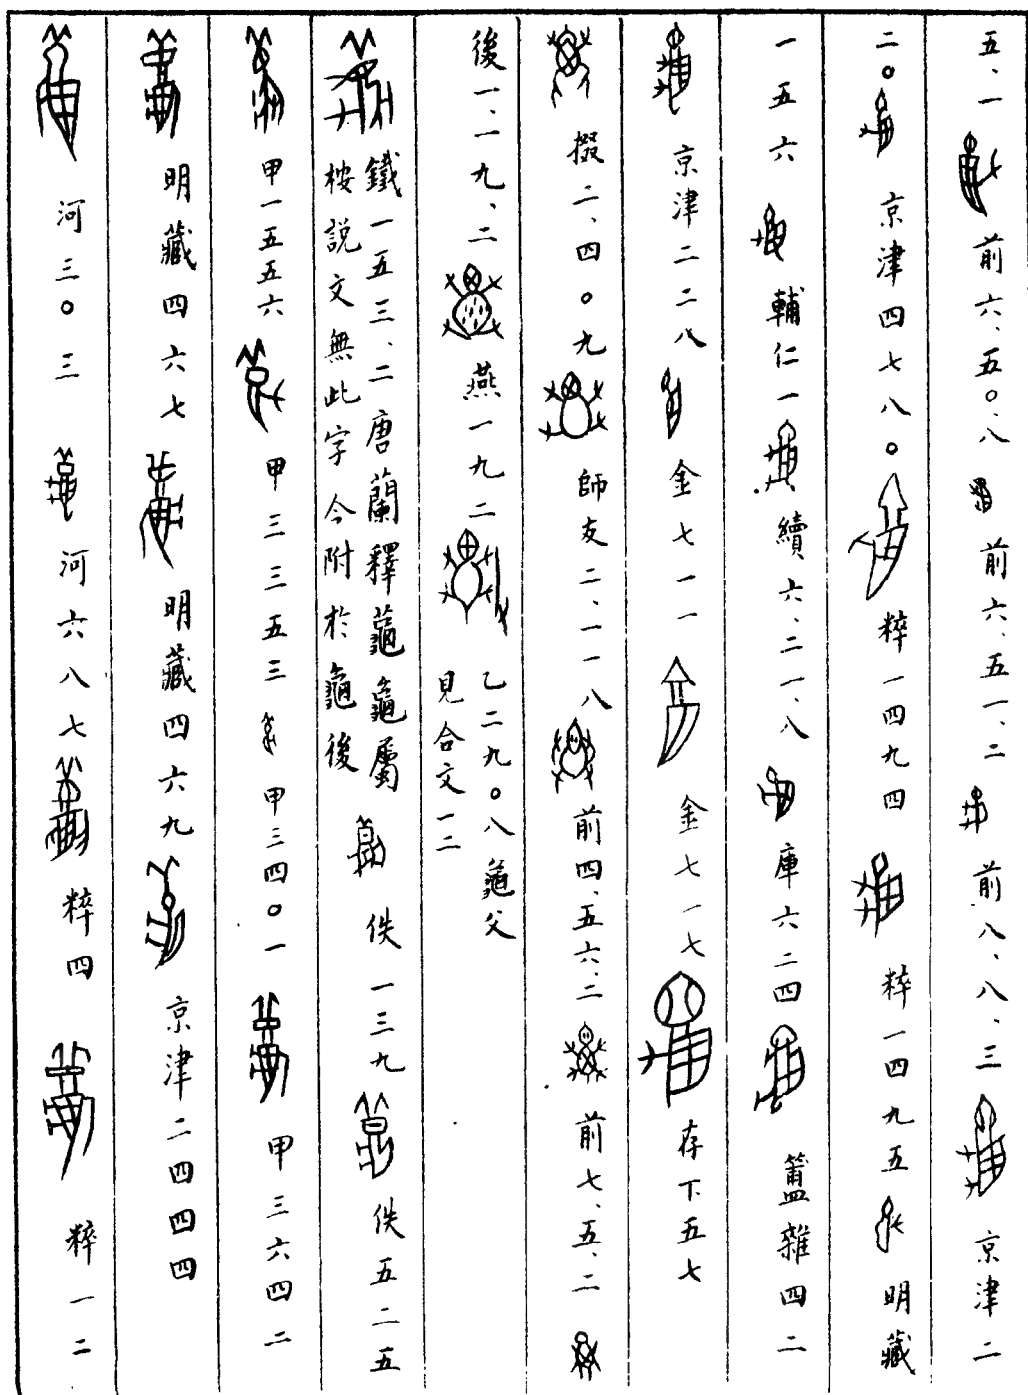 五.一 前六.五〇.八 前六.五一.二 前八.八.三 京津二
二〇 京津四七八〇 粹一四九四 粹一四九五 明藏
一五六 輔仁一 續六.二一.八 庫六二四 簠雜四二
京津二二八 金七一一 金七一七 存下五七
掇二.四〇九 師友二.一一八 前四.五六.二 前七.五.二
後一.一九.二 燕一九二 乙二九〇八龜父 見合文一二
鐵一五三.二唐蘭釋䕯龜屬 桉說文無此字今附於龜後 佚一三九 佚五二五
甲一五五六 甲三三五三 甲三四〇一 甲三六四二
明藏四六七 明藏四六九 京津二四四四
河三〇三 河六八七 粹四 粹一二